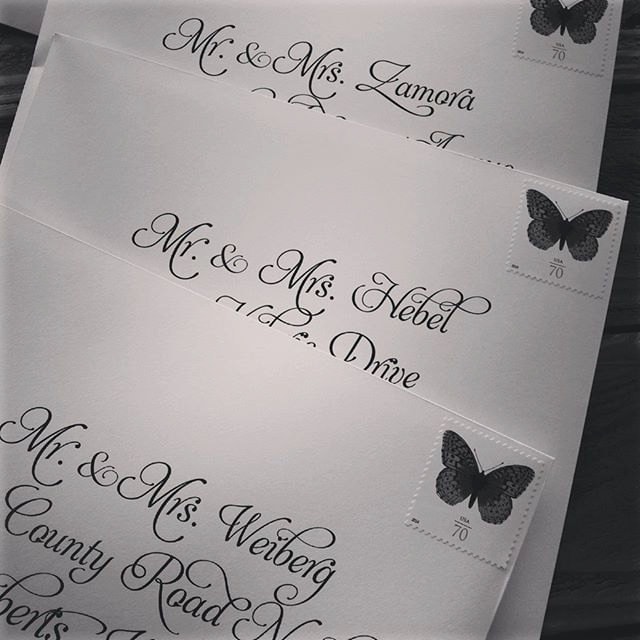 Mr. & Mrs. Zamora
USA
70
Mr. & Mrs. Hebel
Drive
USA
70
Mr. & Mrs. Weiberg
County Road N
USA
70